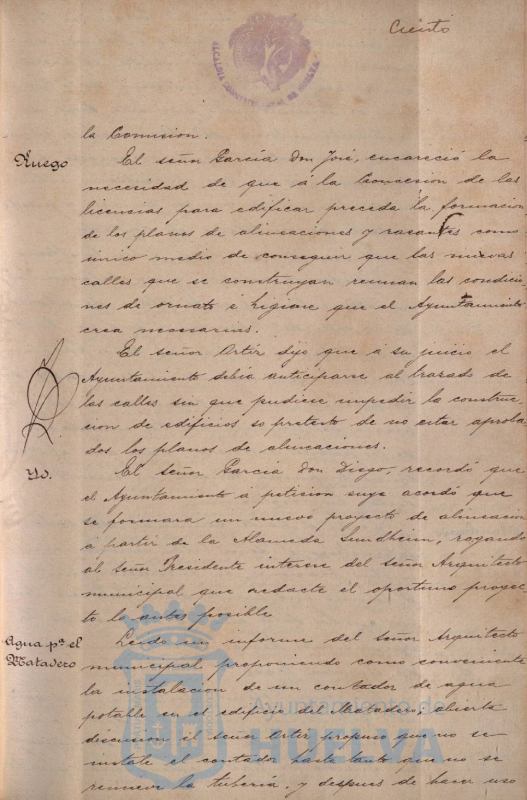 Ciento
ALCALDIA CONSTITUCIONAL DE HUELVA
la Comision.
Ruego
El señor García Don José, encareció la
necesidad de que á la concesion de las
licencias para edificar preceda la formacion
de los planos de alineaciones y rasantes como
único medio de conseguir que las nuevas
calles que se construyan reunan las condicio-
nes de ornato é higiene que el Ayuntamiento
crea necesarias.
El señor Ortiz dijo que á su juicio el
Ayuntamiento debia anticiparse al trazado de
las calles sin que pudiese impedir la construc-
cion de edificios so pretesto de no estar aproba-
dos los planos de alineaciones.
Yd.
El señor García Don Diego, recordó que
el Ayuntamiento á peticion suya acordó que
se formara un nuevo proyecto de alineacion
á partir de la Alameda Sundheim, rogando
al señor Presidente interese del señor Arquitecto
municipal que redacte el oportuno proyec-
to lo antes posible
Agua pª el
Matadero
Leido un informe del señor Arquitecto
municipal, proponiendo como conveniente
la instalacion de un contador de agua
potable en el edificio del Matadero, abierta
discusion el señor Ortiz propuso que no se
instale el contador hasta tanto que no se
renueve la tubería, y despues de hacer uso
Ayuntamiento de
HUELVA